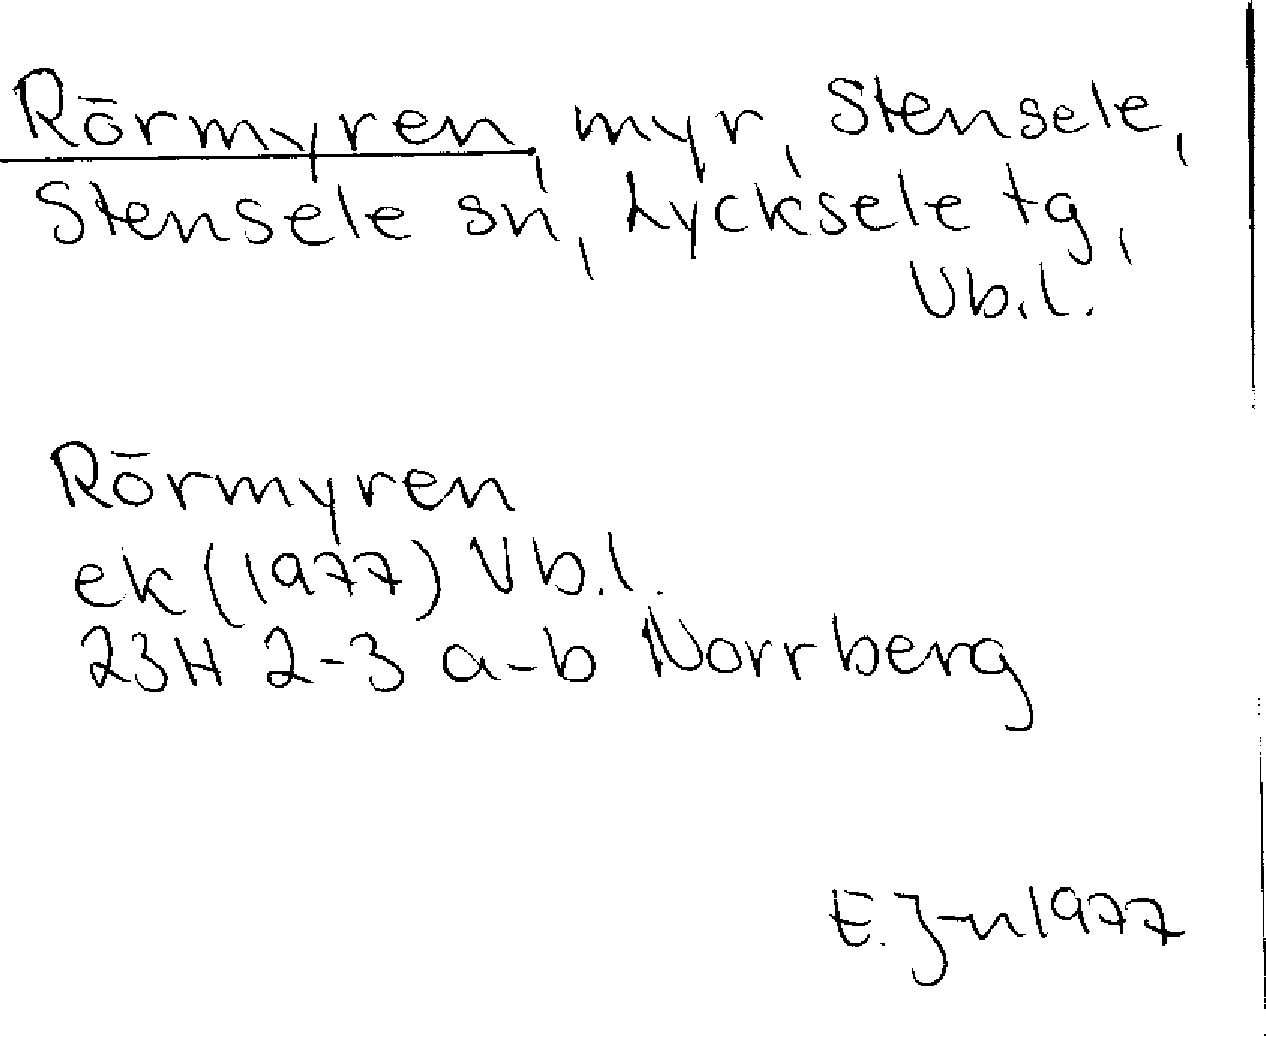 Rörmyren, myr, Stensele,
Stensele sn, Lycksele tg,
Vb.l.
Rörmyren
ek (1977) Vb.l.
23H 2-3 a-b Norrberg
E. J-n 1977